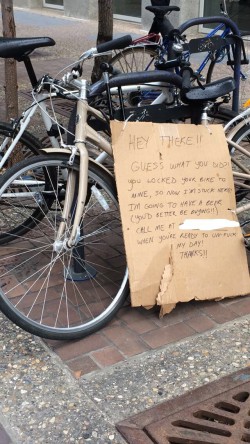 HEY THERE!!
GUESS WHAT YOU DID?!
YOU LOCKED YOUR BIKE TO
MINE, SO NOW I'M STUCK HERE!
I'M GOING TO HAVE A BEER
(YOU'D BETTER BE BUYING!!)
CALL ME AT
WHEN YOU'RE READY TO UN-RUIN
MY DAY!
THANKS!!